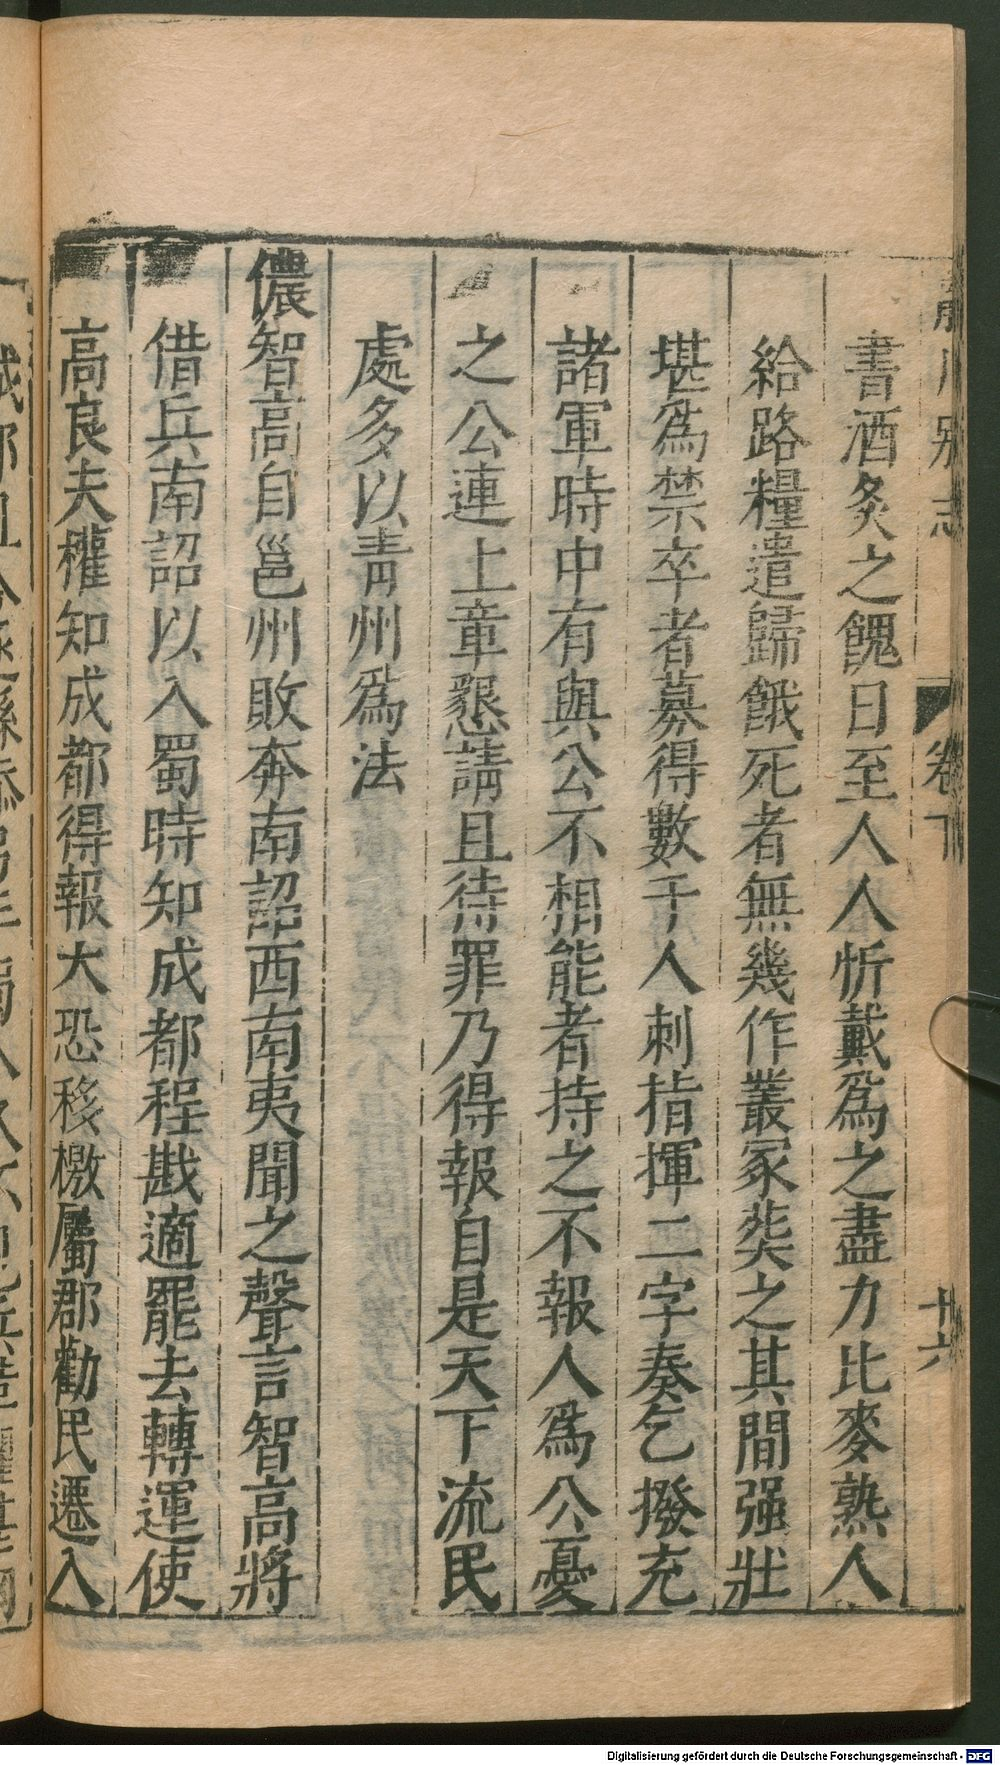 龍川別志
卷下
十六
書酒炙之餽日至人人忻戴爲之盡力比麥熟人
給路糧遣歸餓死者無幾作叢冢葬之其間强壯
堪爲禁卒者募得數千人刺指揮二字奏乞撥充
諸軍時中有與公不相能者持之不報人爲公憂
之公連上章懇請且待罪乃得報自是天下流民
處多以青州爲法
儂智高自邕州敗奔南詔西南夷聞之聲言智高將
借兵南詔以入蜀時知成都程戡適罷去轉運使
高良夫權知成都得報大恐移檄屬郡勸民遷入
Digitalisierung gefördert durch die Deutsche Forschungsgemeinschaft - DFG